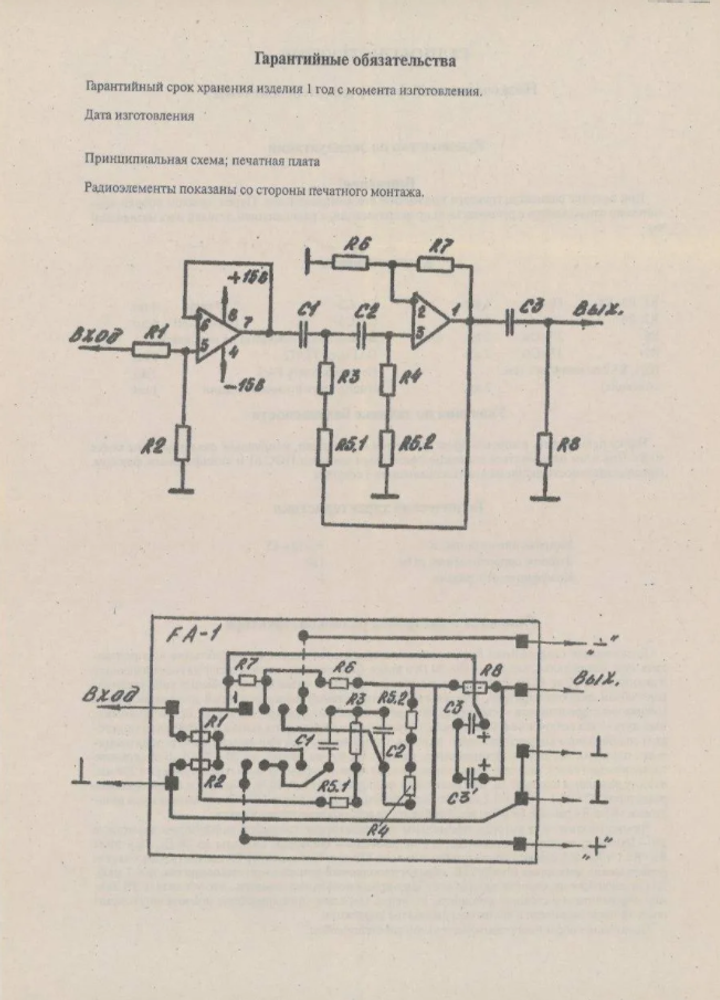 Гарантийные обязательства
Гарантийный срок хранения изделия 1 год с момента изготовления.
Дата изготовления
Принципиальная схема; печатная плата
Радиоэлементы показаны со стороны печатного монтажа.
R6 R7
+15В
6 8 7 C1 C2 2 1 C3 Вых.
Вход R1 5 4 3
-15В R3 R4
R2 R5.1 R5.2 R8
FA-1 „-“
R7 R6 R8
Вход R3 R5.2 C3 Вых.
1
R1 C1 C2 + ⊥
+
⊥ R2 R5.1 C3' ⊥
R4
„+“